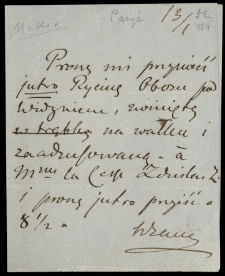 Paryż 13/1
Proszę mi przynieść
jutro Rycinę Obozu pod
Widzyniem, zwiniętą
w trąbkę na wałku i
zaadresowaną - à
Mme la Csse Zdzislas Z.
i proszę jutro przyjść o
8 1/2